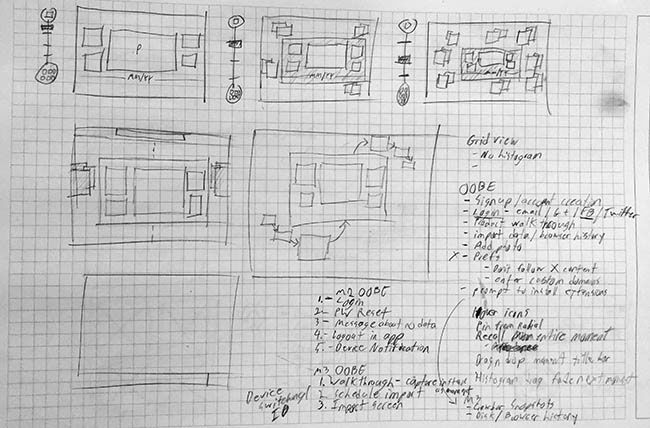 P
mm/yy
mm/yy
mm/yy
Grid view
- No histogram
-
OOBE
- Signup/account creation
- Login - email / G+ / FB / Twitter
- Product walk through
- import data/browser history
- Add photo
X - Prefs
- Don't follow X content
- enter custom domains
- prompt to install extensions
M2 OOBE
1. - Login
2 - PW Reset
3 - Message about no data
4. - Logout in app
5. - Device Notification
icons
Pin from Radial
Recall entire moment
Drag n drop moment
Histogram
M3 OOBE
1. Walkthrough - capture
2 schedule import
3. Import screen
Device
switching/
ID
M3
Snapshots
- Disk/Browser history